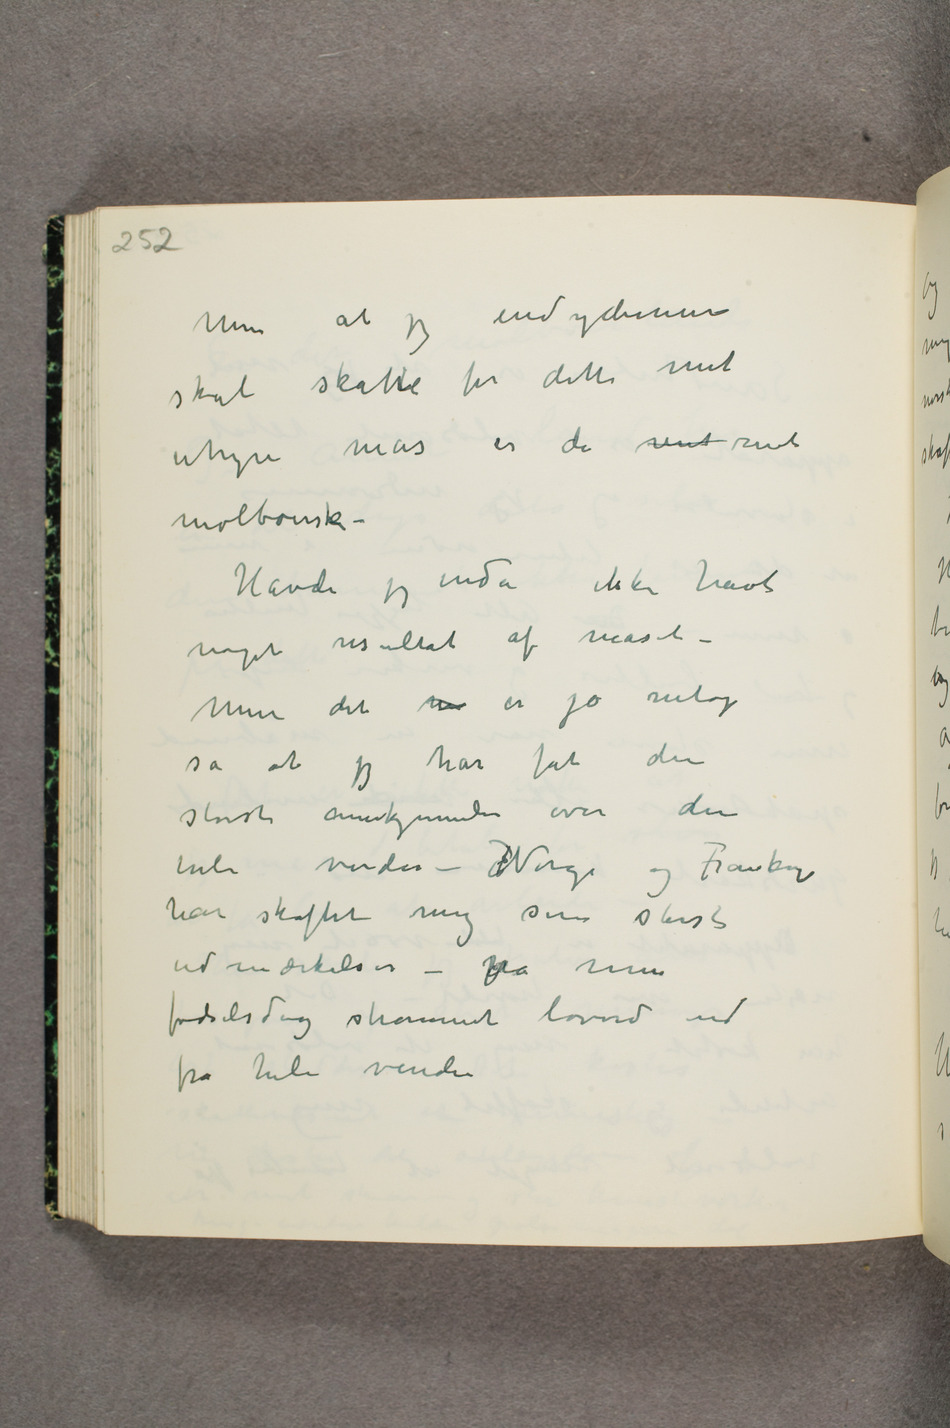 252
Men at jeg endydermere
skal skatte for dette mit
uhyre mas er da rent rent
molboensk –
Havde jeg enda ikke havt
noget resultat af maset –
Men det er jo netop
sa at jeg har fåt den
største anerkjennelse over den
hele verden – Norge og Frankrige
har skaffet mig sine største
udmærkelser – pa min
fødselsdag strømmet lovord ind
fra hele verden